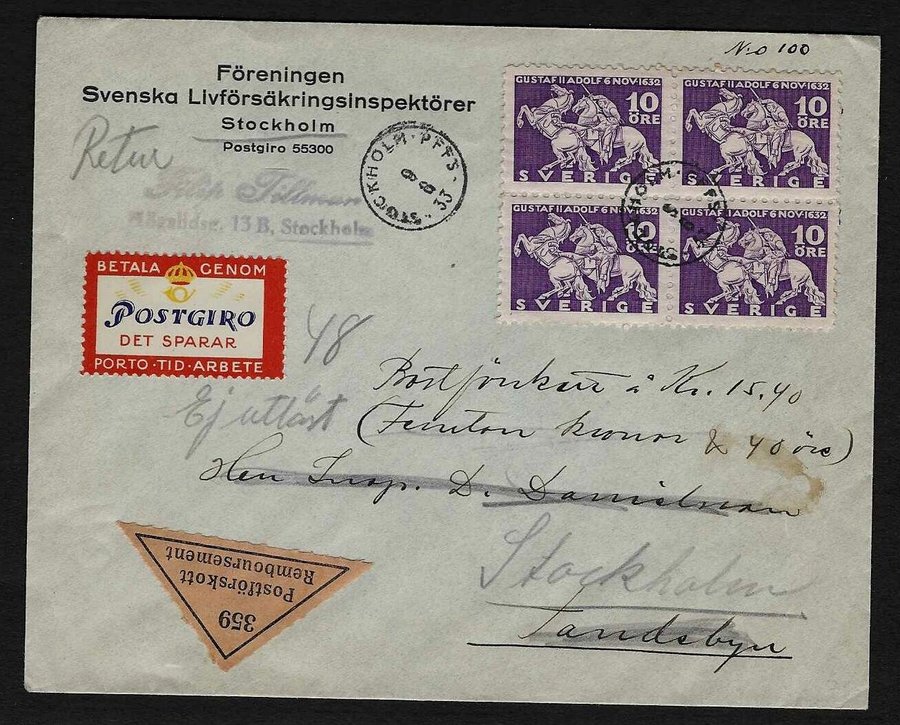 N:o 100
Föreningen
Svenska Livförsäkringsinspektörer
Stockholm
Postgiro 55300
Retur
Tillman
13 B, Stockholm
STOCKHOLM · PFFS ·
9 8
33
GUSTAF II ADOLF 6 NOV·1632
10
ÖRE
SVERIGE
GUSTAF II ADOLF 6 NOV·1632
10
ÖRE
SVERIGE
GUSTAF II ADOLF 6 NOV·1632
10
ÖRE
SVERIGE
GUSTAF II ADOLF 6 NOV·1632
10
ÖRE
SVERIGE
BETALA GENOM
POSTGIRO
DET SPARAR
PORTO·TID·ARBETE
48
Ej utlöst
Postförskott à Kr. 15,40
(Femton kronor & 40 öre)
Herr Insp. D. Danielman
Stockholm
Tandsbyn
359
Postförskott
Remboursement